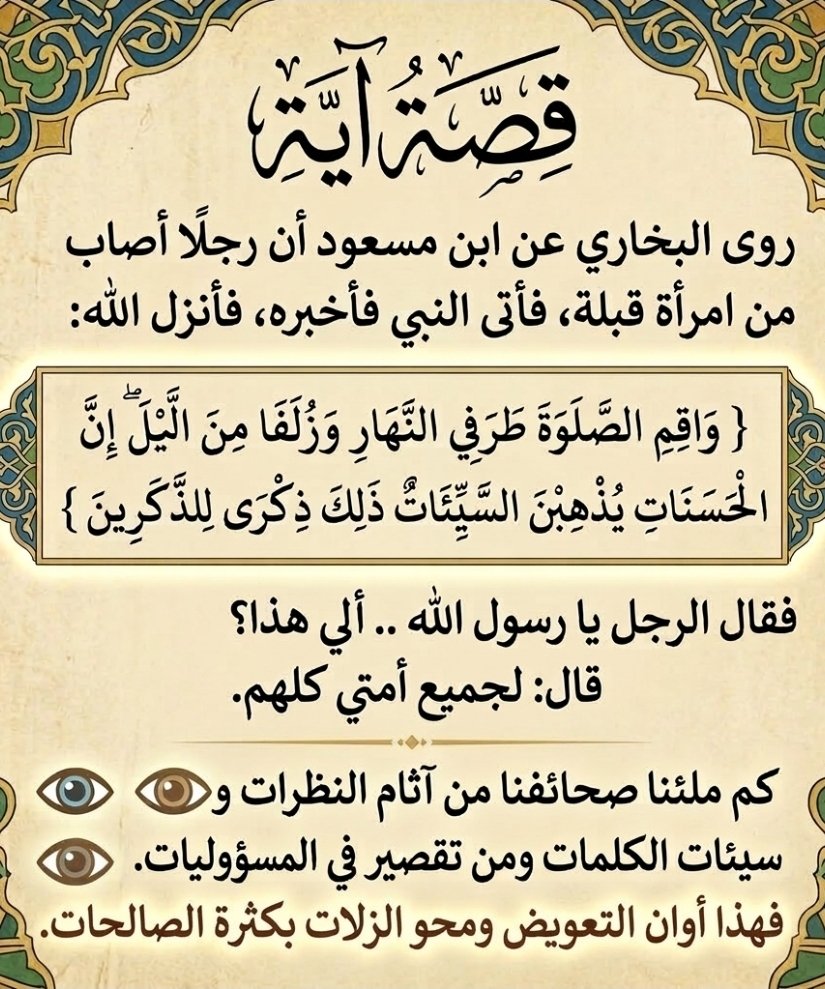 قِصَّةُ آيَةِ
روى البخاري عن ابن مسعود أن رجلًا أصاب
من امرأة قبلة، فأتى النبي فأخبره، فأنزل الله:
{ وَاقِمِ الصَّلَوَةَ طَرَفِي النَّهَارِ وَزُلَفَا مِنَ الَّيْلَۖ إِنَّ
الْحَسَنَاتِ يُذْهِبْنَ السَّيِّئَاتٌ ذَلِكَ ذِكْرَى لِلذَّكَرِينَ }
فقال الرجل يا رسول الله .. ألي هذا؟
قال: لجميع أمتي كلهم.
كم ملئنا صحائفنا من آثام النظرات و
سيئات الكلمات ومن تقصير في المسؤوليات.
فهذا أوان التعويض ومحو الزلات بكثرة الصالحات.